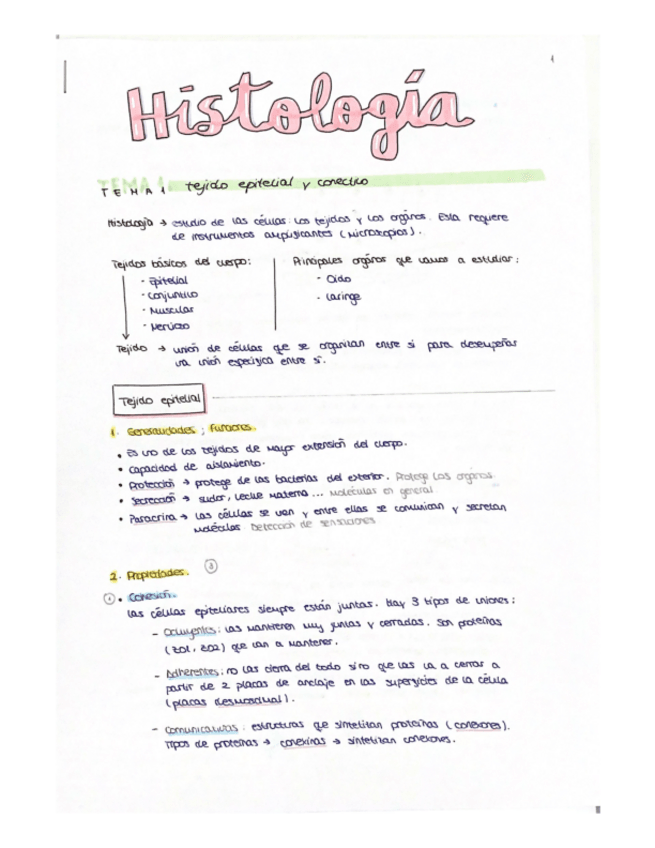 1
Histología
TEMA 1 tejido epitelial y conectivo
Histología → estudio de las células. Los tejidos y los orgános. Esta requiere
de instrumentos amplificantes (microscopios).
Tejidos básicos del cuerpo:
- Epitelial
- Conjuntivo
- Muscular
- Nervioso
Principales orgános que vamos a estudiar:
- Oido
- Laringe
Tejido → unión de células que se organizan entre si para desempeñar
una unión específica entre sí.
Tejido epitelial
1. Generalidades ; Funciones.
• Es uno de los tejidos de mayor extensión del cuerpo.
• Capacidad de aislamiento.
• Protección → protege de las bacterias del exterior. Protege los organos.
• Secreción → sudor, leche materna ... Moléculas en general
• Paracrina → las células se unen y entre ellas se comunican y secretan
moléculas. Detección de sensaciones
2. Propiedades. 3
1 • Cohesión.
Las células epiteliares siempre están juntas. Hay 3 tipos de uniones:
- Ocluyentes: las mantienen muy juntas y cerradas. Son proteínas
(ZO1, ZO2) que van a mantener.
- Adherentes: no las cierra del todo sino que las va a cerrar a
partir de 2 placas de anclaje en las superficies de la célula
(placas desmosdual).
- Comunicantes: estructuras que sintetizan proteínas (conexones).
Tipos de proteínas → conexinas → sintetizan conexones.